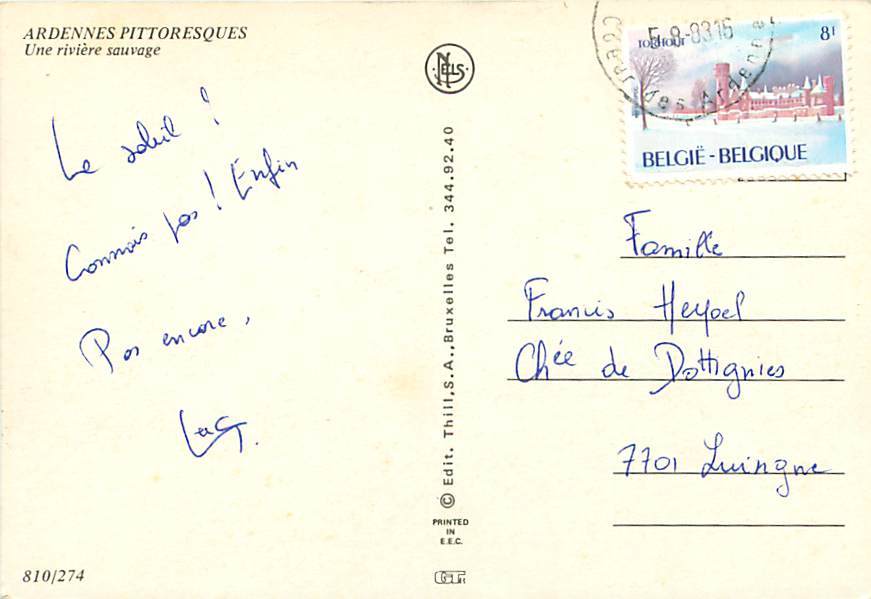 ARDENNES PITTORESQUES
Une rivière sauvage
Le soleil ?
Connais pas ! Enfin
Pas encore,
Luc
810/274
NELS
© Edit. Thill, S.A., Bruxelles Tel. 344.92.40
PRINTED
IN
E.E.C.
5-8-83 16
des Ardenne
TORHOUT
8F
BELGIË - BELGIQUE
Famille
Francis Heypel
Chée de Dottignies
7701 Luingne